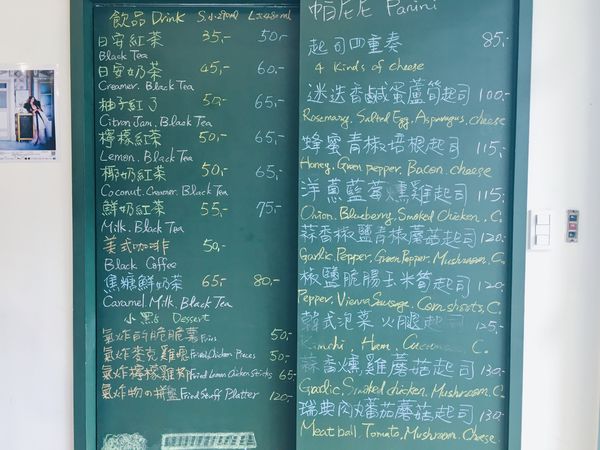 飲品 Drink S.小270ml L.大480ml
日安紅茶 35,- 50,-
Black Tea
日安奶茶 45,- 60,-
Creamer. Black Tea
柚子紅了 50,- 65,-
Citron Jam. Black Tea
檸檬紅茶 50,- 65,-
Lemon. Black Tea
椰奶紅茶 50,- 65,-
Coconut. Creamer. Black Tea
鮮奶紅茶 55,- 75,-
Milk. Black Tea
美式咖啡 50,-
Black Coffee
焦糖鮮奶茶 65,- 80,-
Caramel. Milk. Black Tea
小點 Dessert
氣炸的脆脆薯 Fries 50,-
氣炸麥克雞塊 Fried Chicken Pieces 50,-
氣炸檸檬雞柳 Fried Lemon Chicken Sticks 65,-
氣炸物の拼盤 Fried Stuff Platter 120,-
帕尼尼 Panini
起司四重奏 85,-
4 kinds of cheese
迷迭香鹹蛋蘆筍起司 100,-
Rosemary, Salted Egg, Asparagus, cheese
蜂蜜青椒培根起司 115,-
Honey, Green pepper, Bacon, cheese
洋蔥藍莓燻雞起司 115,-
Onion, Blueberry, Smoked Chicken, C.
蒜香椒鹽青椒蘑菇起司 120,-
Garlic, Pepper, Green Pepper, Mushroom, C.
椒鹽脆腸玉米筍起司 120,-
Pepper, Vienna Sausage, Corn shorts, C.
韓式泡菜火腿起司 125,-
Kimchi, Ham, C.
蒜香燻雞蘑菇起司 130,-
Garlic, Smoked chicken, Mushroom, C.
瑞典肉丸蕃茄蘑菇起司 130,-
Meat ball, Tomato, Mushroom, Cheese